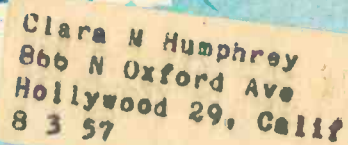 Clara M Humphrey
866 N Oxford Ave
Hollywood 29, Calif
8 3 57